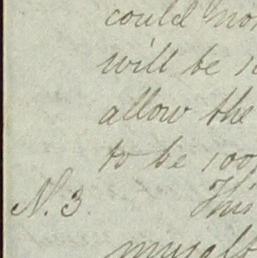 could no
will be
allow the
to be 100
N. 3 This
myself